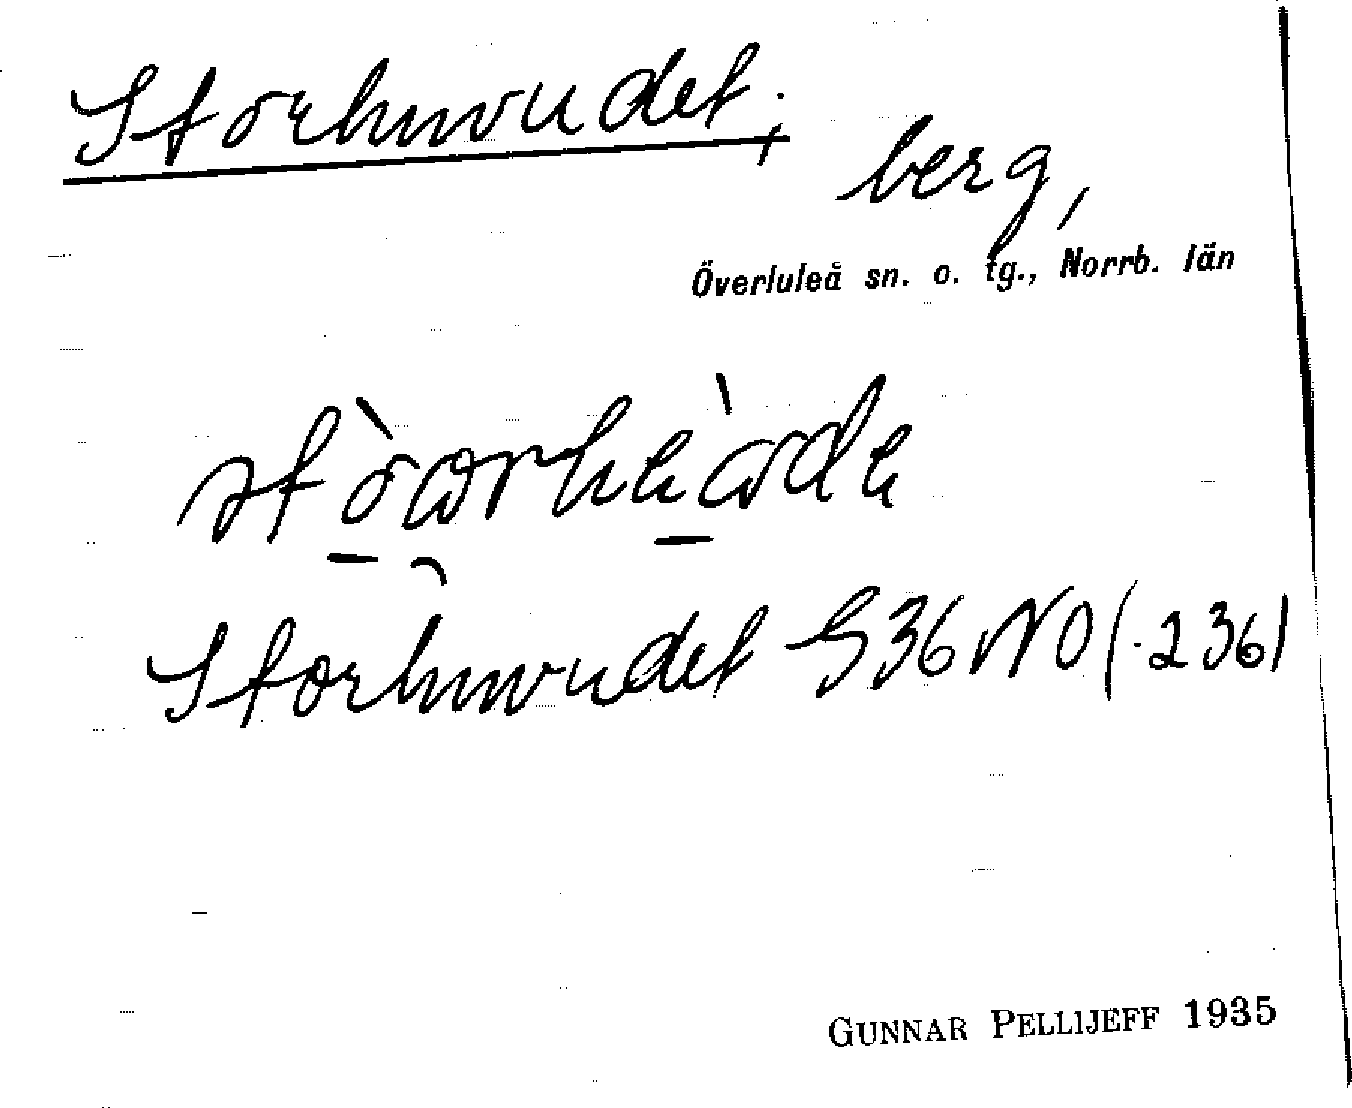 Storhuvudet;
berg,
Överluleå sn. o. tg., Norrb. län
Storhuvudet S36NO (236)
GUNNAR PELLIJEFF 1935